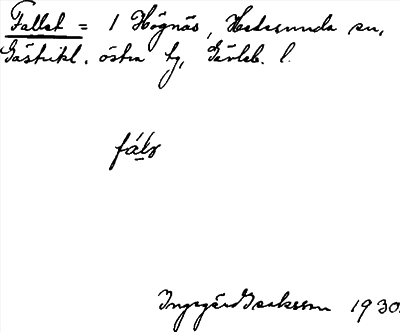 Fallet = 1 Högnäs, Hedesunda sn,
Gästrikl. östra tg, Gävleb. l.
fálɘ
Ingegärd Isaksson 1930.